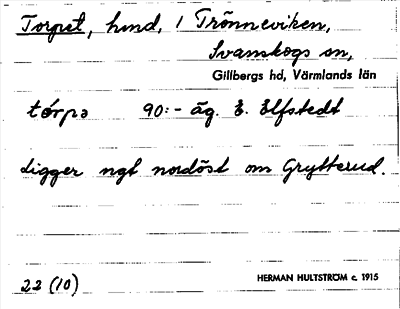 Torpet, hmd, i Trönneviken,
Svanskogs sn,
Gillbergs hd, Värmlands län
tórpə 90:- äg. E. Elfstedt
Ligger ngt nordöst om Grytterud.
22 (10)
HERMAN HULTSTRÖM c. 1915